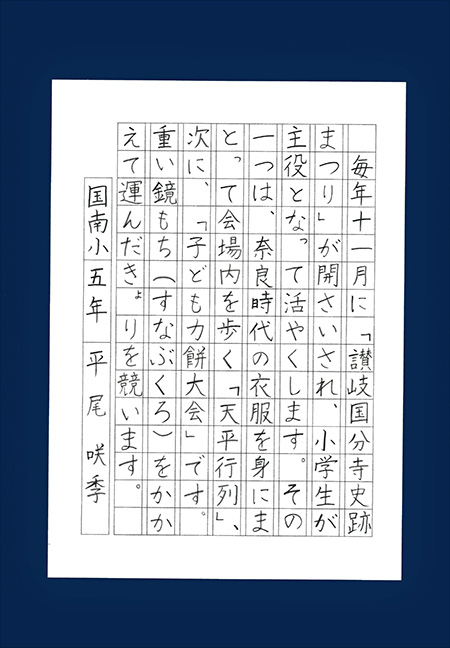 毎年十一月に「讃岐国分寺史跡
まつり」が開さいされ、小学生が
主役となって活やくします。その
一つは、奈良時代の衣服を身にま
とって会場内を歩く「天平行列」、
次に、「子ども力餅大会」です。
重い鏡もち（すなぶくろ）をかか
えて運んだきょりを競います。
国南小五年　平尾　咲季